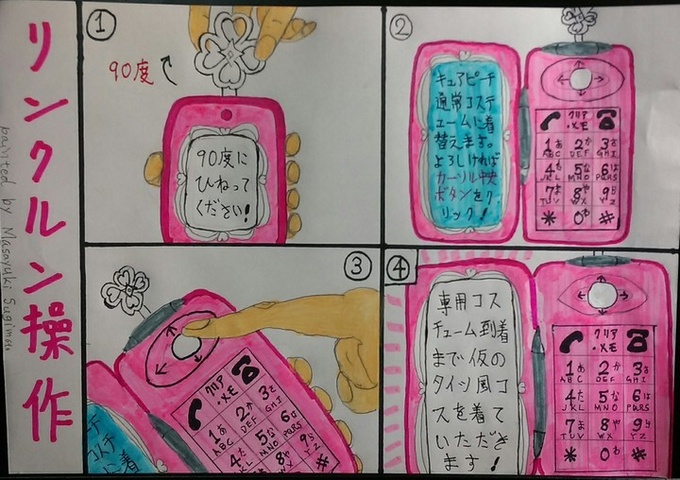 リンクルン操作
painted by Masayuki Sugimau
①
90度
90度に
ひねって
ください!
②
キュアピーチ
通常コスチ
ュームに着
替えます。
よろしければ
カーソル中央
ボタンをク
リック!
クリア
・メモ
1あ 2か 3さ
ABC DEF GHI
4た 5な 6は
JKL MNO PQRS
7ま 8や 9ら
TUV WX YZ
* 0わ #
③
クリア
・メモ
1あ 2か 3さ
ABC DEF GHI
4た 5な 6は
JKL MNO PQRS
7ま 8や 9ら
#
チ
コスチ
に着
④
専用コス
チューム到着
まで仮の
タイツ風コ
スを着て
いただき
ます!
クリア
・メモ
1あ 2か 3さ
ABC DEF GHI
4た 5な 6は
JKL MNO PQRS
7ま 8や 9ら
TUV WX YZ
* 0わ #